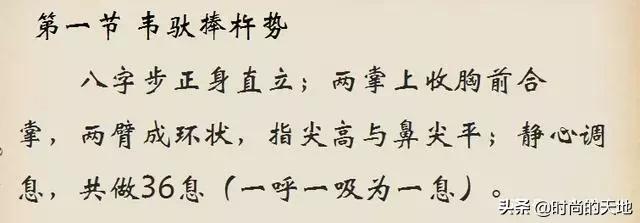 第一节 韦驮捧杵势
八字步正身直立；两掌上收胸前合
掌，两臂成环状，指尖高与鼻尖平；静心调
息，共做36息（一呼一吸为一息）。
头条 @时尚的天地